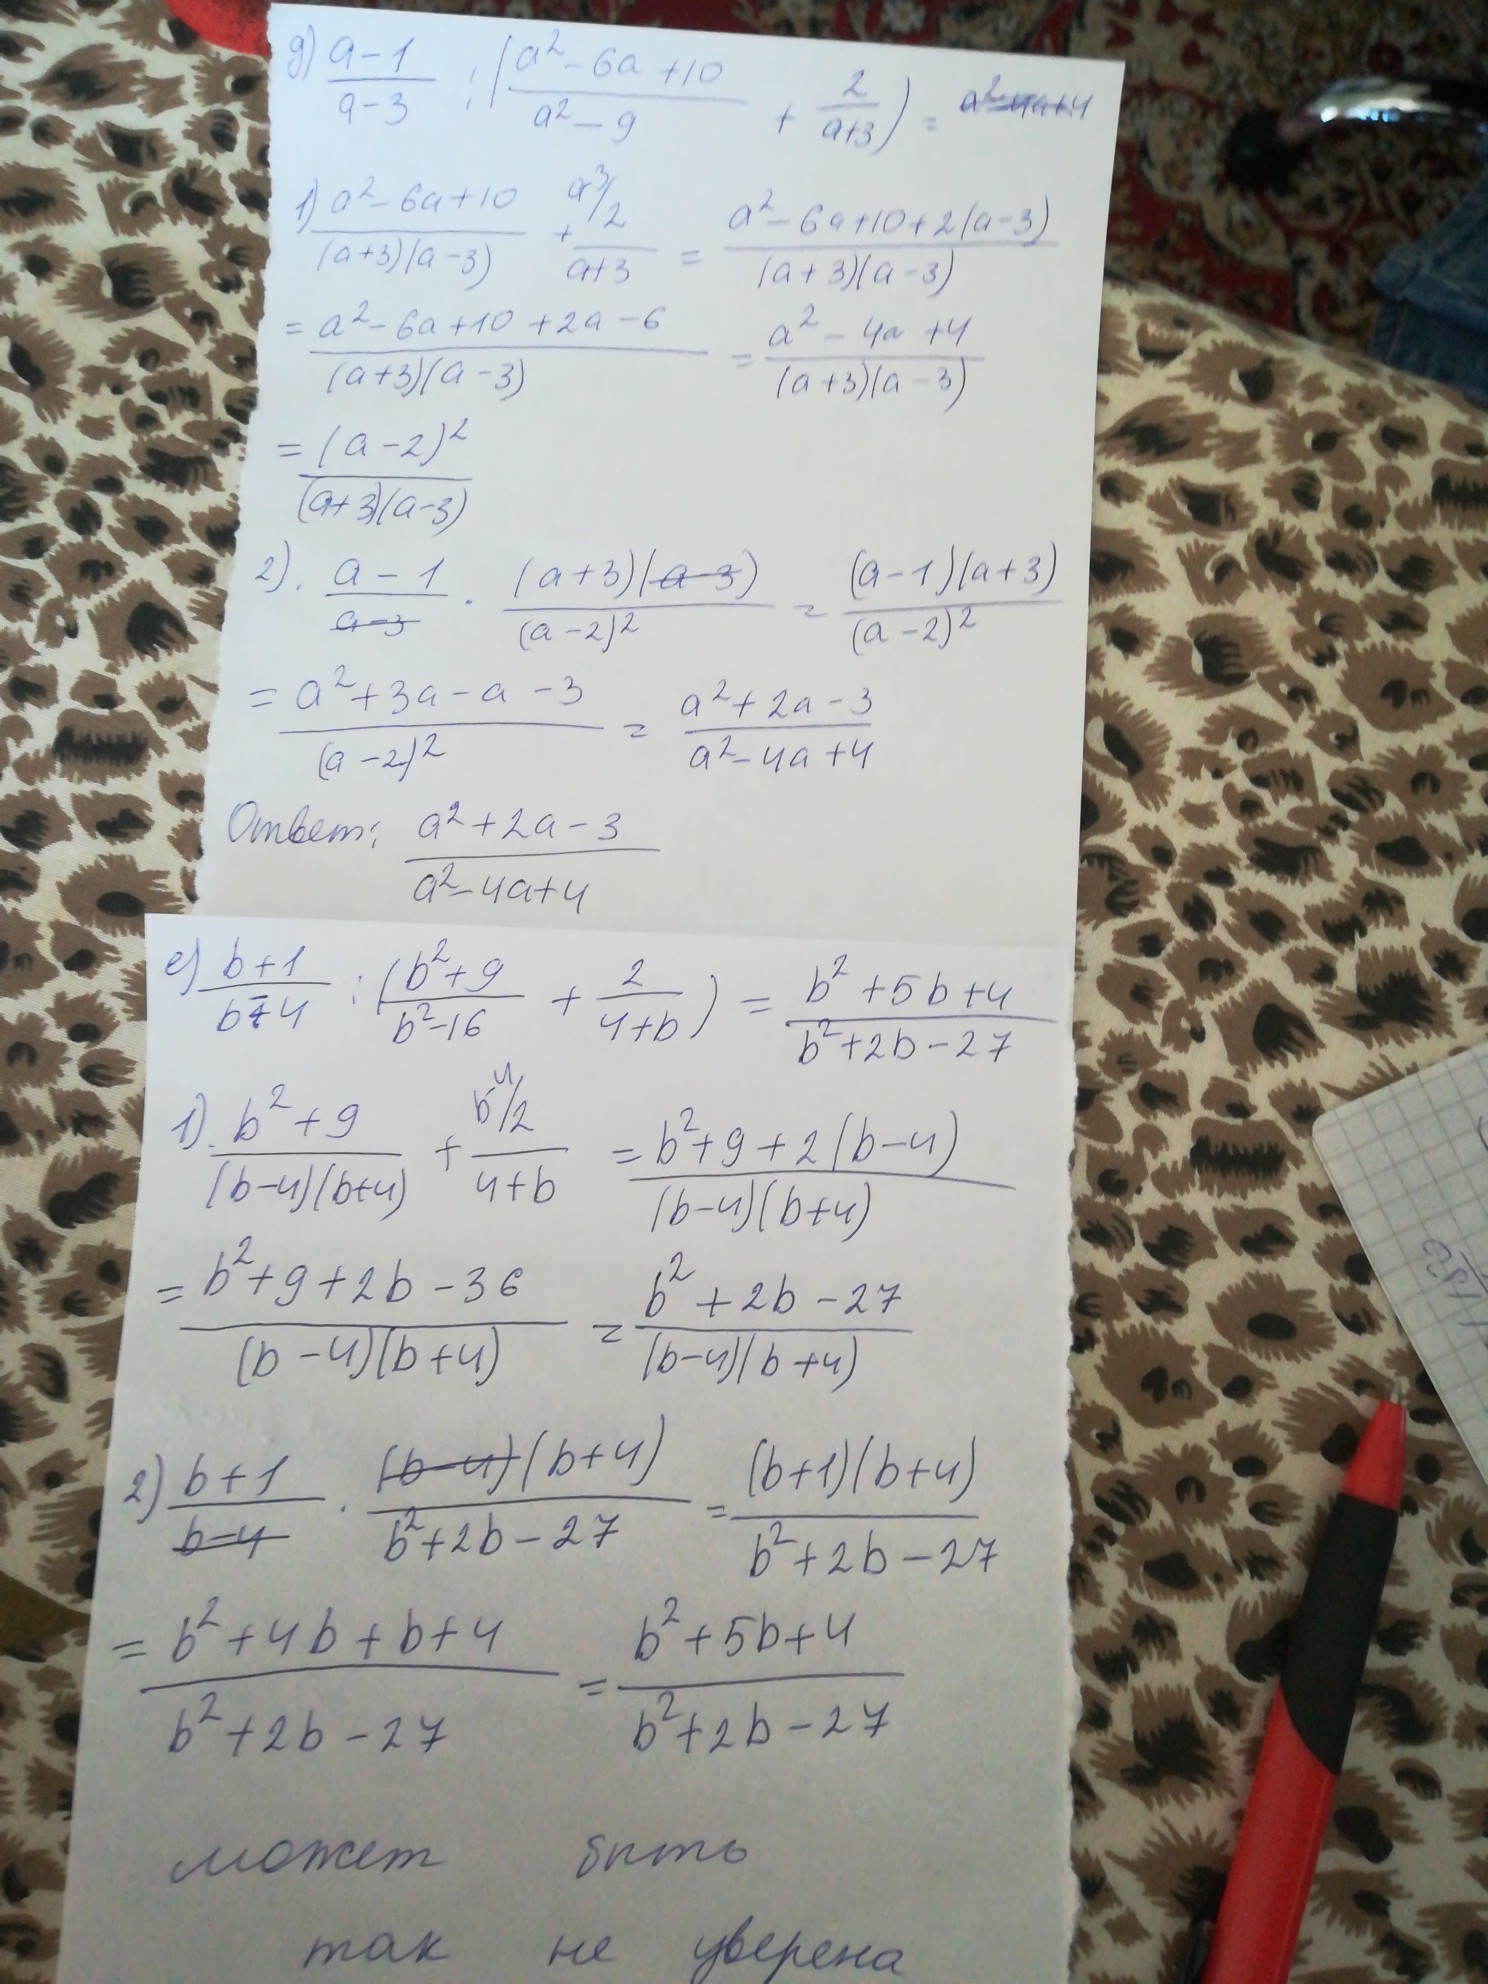 д) (a-1)/(a-3) : ((a²-6a+10)/(a²-9) + 2/(a+3)) =
1) (a²-6a+10)/((a+3)(a-3)) + 2/(a+3) = (a²-6a+10+2(a-3))/((a+3)(a-3))
= (a²-6a+10+2a-6)/((a+3)(a-3)) = (a²-4a+4)/((a+3)(a-3))
= (a-2)²/((a+3)(a-3))
2). (a-1)/(a-3) · ((a+3)(a-3))/(a-2)² = ((a-1)(a+3))/(a-2)²
= (a²+3a-a-3)/(a-2)² = (a²+2a-3)/(a²-4a+4)
Ответ: (a²+2a-3)/(a²-4a+4)
е) (b+1)/(b-4) : ((b²+9)/(b²-16) + 2/(4+b)) = (b²+5b+4)/(b²+2b-27)
1). (b²+9)/((b-4)(b+4)) + 2/(4+b) = (b²+9+2(b-4))/((b-4)(b+4))
= (b²+9+2b-36)/((b-4)(b+4)) = (b²+2b-27)/((b-4)(b+4))
2) (b+1)/(b-4) · ((b-4)(b+4))/(b²+2b-27) = ((b+1)(b+4))/(b²+2b-27)
= (b²+4b+b+4)/(b²+2b-27) = (b²+5b+4)/(b²+2b-27)
может быть
так не уверена